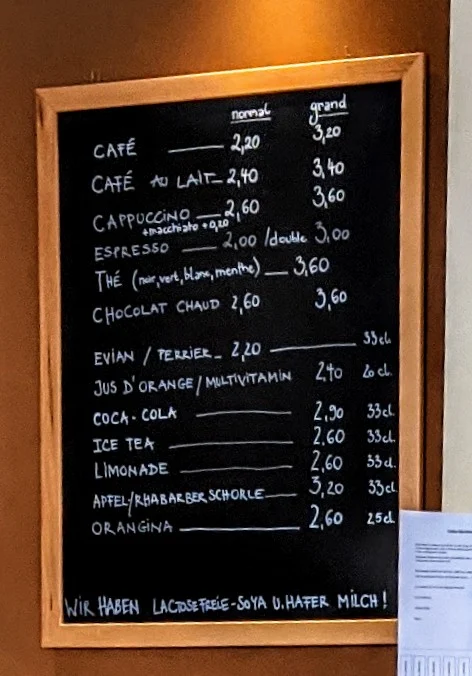 normal grand
CAFÉ 2,20 3,20
CAFÉ AU LAIT 2,40 3,40
CAPPUCCINO 2,60 3,60
+macchiato +0,20
ESPRESSO 2,00 /double 3,00
THÉ (noir, vert, blanc, menthe) 3,60
CHOCOLAT CHAUD 2,60 3,60
EVIAN / PERRIER 2,20 33cl.
JUS D'ORANGE/MULTIVITAMIN 2,40 20cl.
COCA-COLA 2,90 33cl.
ICE TEA 2,60 33cl.
LIMONADE 2,60 33cl.
APFEL/RHABARBERSCHORLE 3,20 33cl
ORANGINA 2,60 25cl
WIR HABEN LACTOSEFREIE-SOYA U. HAFER MILCH!